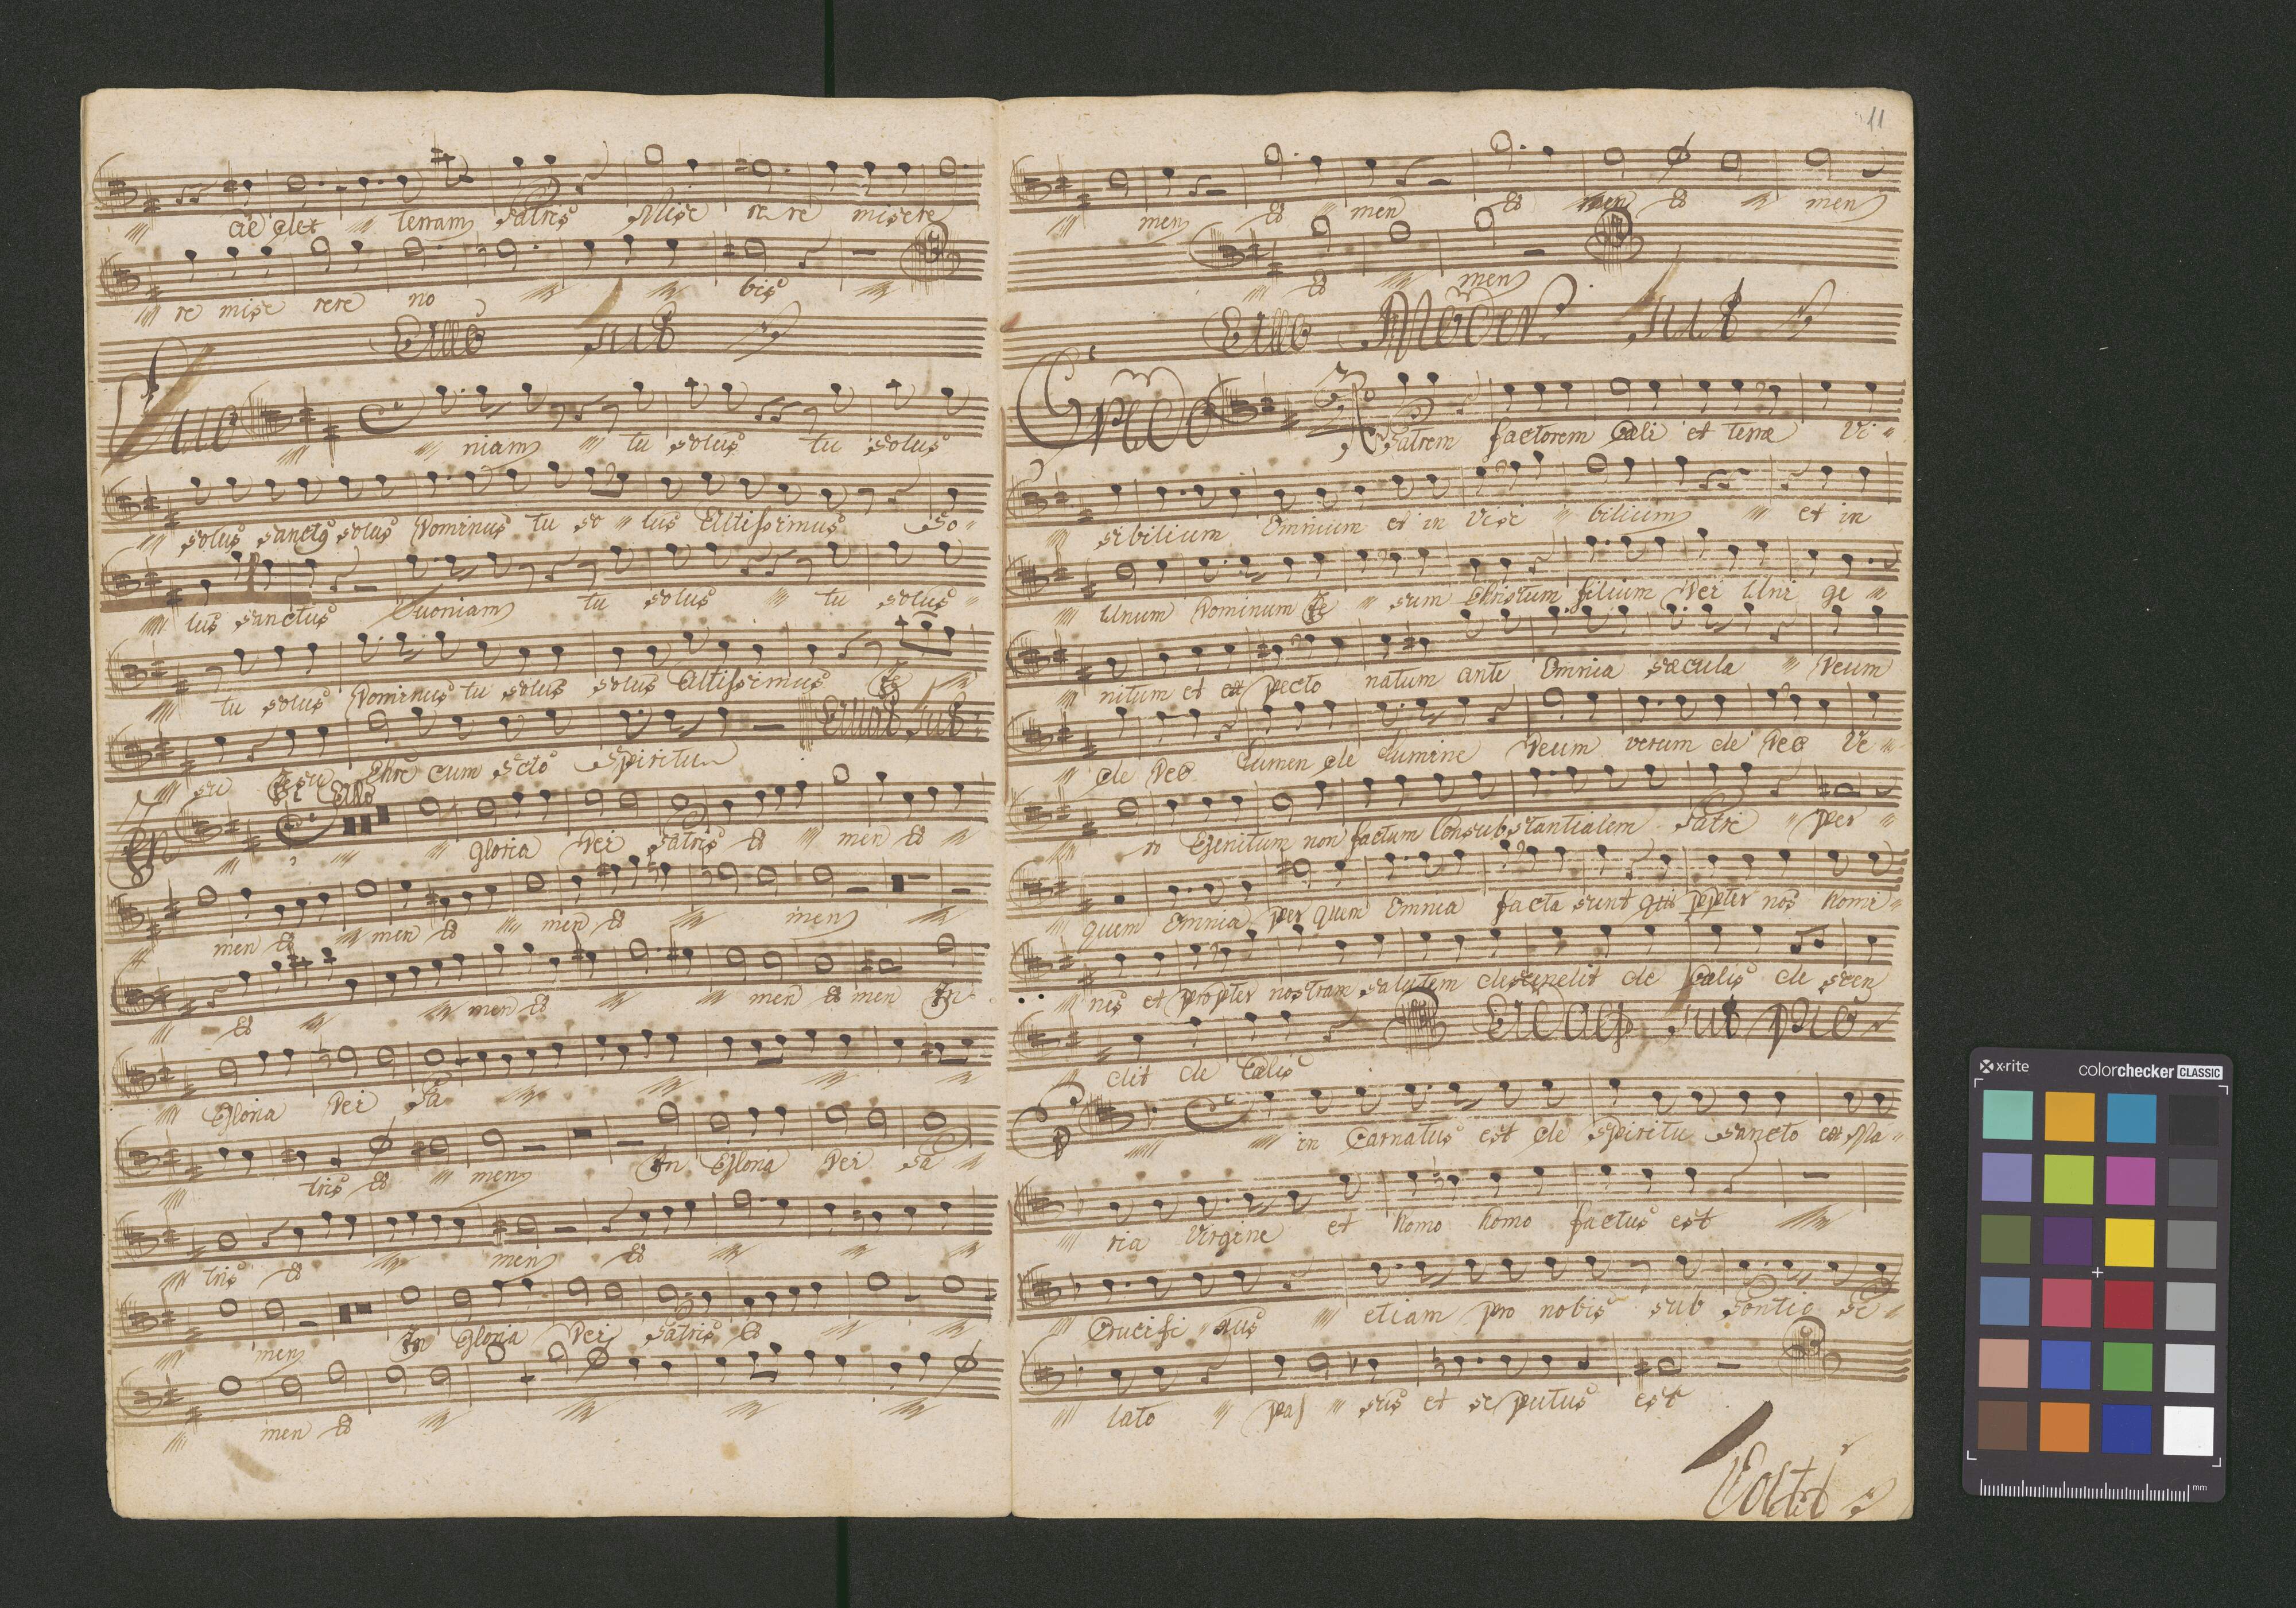 ae dext terram Patris Mise re re misere
re mise rere no bis
Allo
niam tu solus tu solus
solus sanctus solus Dominus tu so lus Altissimus So
lus sanctus Quoniam tu solus tu solus
tu solus Dominus tu solus solus Altissimus Je
su Jesu Chre cum Scto Spiritu
Allo
gloria Dei Patris A men A
men A men A men A men
A men A men A men In
Gloria Dei Pa
tris A men In Gloria Dei Pa
tris A men A
men In Gloria Dei Patris A
men A
11
men A men A men A men
A men
Allo Moder
Credo Patrem factorem Cæli et terræ Vi
sibilium Omnium et in Visi bilium et in
Unum Dominum Je sum Christum filium Dei Uni ge
nitum et ex Patre natum ante Omnia sæcula Deum
de Deo Lumen de Lumine Deum verum de Deo Ve
ro Genitum non factum Consubstantialem Patri per
quem Omnia per quem Omnia facta sunt qui ppter nos homi
nes et propter nostram salutem descendit de Cælis de scen
dit de Cælis
in Carnatus est de Spiritu Sancto ex Ma
ria Virgine et homo homo factus est
Crucifi xus etiam pro nobis sub Pontio Pi
lato pas sus et sepultus est
Volti